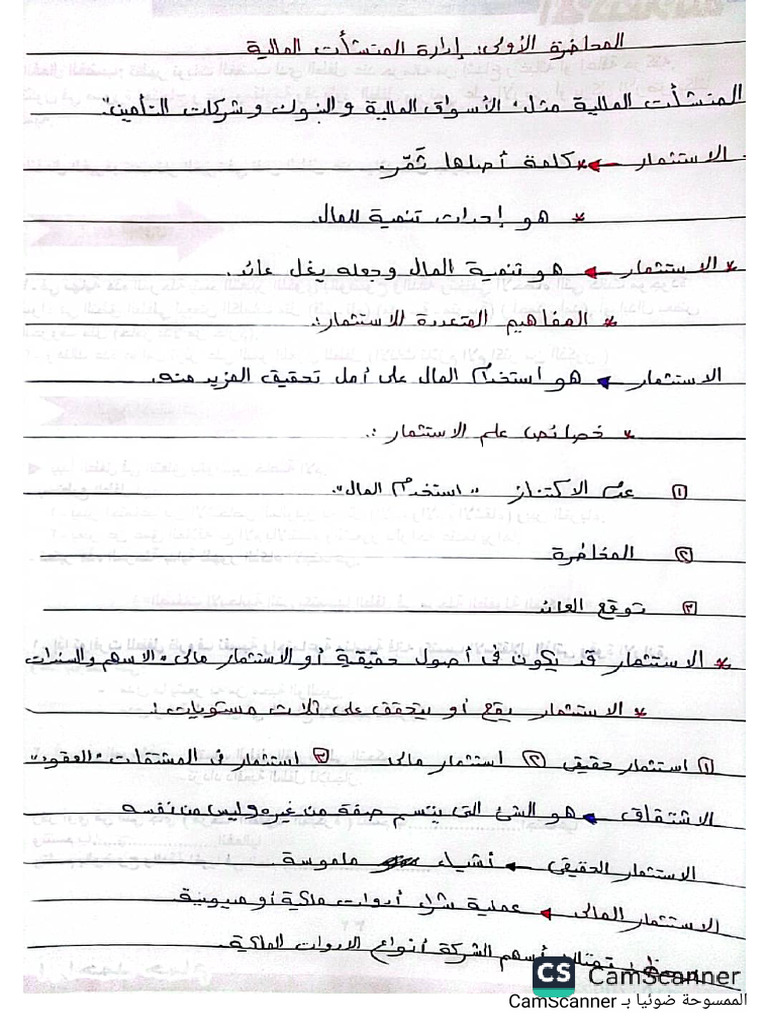 المحاضرة الأولى: إدارة المنشأت المالية
المنشأت المالية مثل "الأسواق المالية والبنوك وشركات التأمين".
الاستثمار ← * كلمة أصلها ثَمّر.
* هو إحداث تنمية للمال.
* الاستثمار ← هو تنمية المال وجعله يغل عائد.
* المفاهيم المتعددة للاستثمار:.
الاستثمار ← هو استخدام المال على أمل تحقيق المزيد منه.
* خصائص علم الاستثمار :.
① الاكتناز "استخدام المال".
② المخاطرة
③ توقع العائد
* الاستثمار قد يكون فى أصول حقيقية أو الاستثمار مالى "الاسهم والسندات
* الاستثمار يقع أو يتحقق على ثلاث مستويات :
① استثمار حقيقى ② استثمار مالى ③ استثمار فى المشتقات "العقود"
الاشتقاق ← هو الشئ التى يتسم صفة من غيره وليس من نفسه
الاستثمار الحقيقى ← أشياء ملموسة.
الاستثمار المالى ← عملية شراء أدوات ملكية أو مديونية.
تمتلك أسهم الشركة أنواع الادوات الملكية.
CS CamScanner
الممسوحة ضوئيا بـ CamScanner